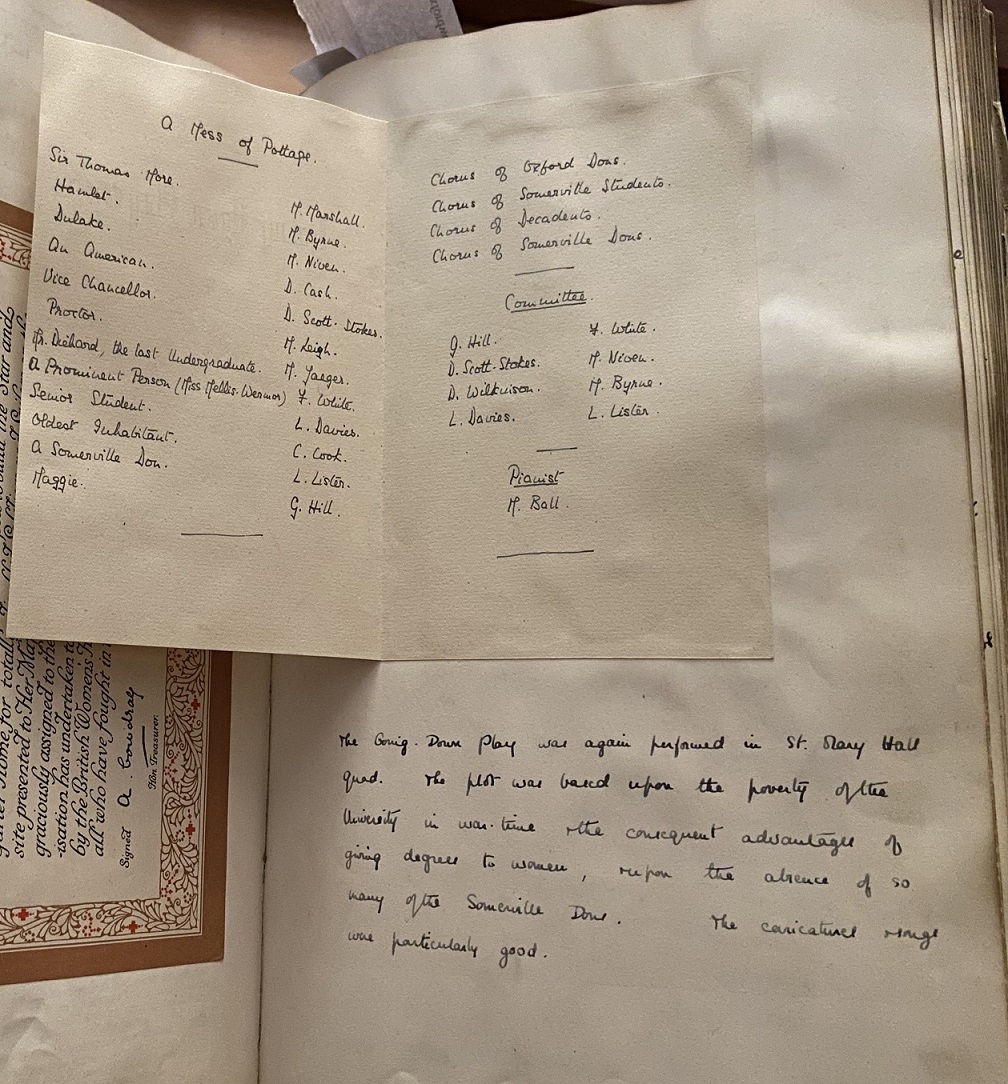 A Mess of Pottage.
Sir Thomas More. M. Marshall.
Hamlet. M. Byrne.
Dulake. M. Niven.
An American. D. Cash.
Vice Chancellor. D. Scott-Stokes.
Proctor. M. Leigh.
Mr. Diehard, the last Undergraduate. M. Jaeger.
A Prominent Person (Miss Mellis-Wermor) F. White.
Senior Student. L. Davies.
Oldest Inhabitant. C. Cook.
A Somerville Don. L. Lister.
Maggie. G. Hill.
Chorus of Oxford Dons.
Chorus of Somerville Students.
Chorus of Decadents.
Chorus of Somerville Dons.
Committee.
G. Hill. F. White.
D. Scott-Stokes. M. Niven.
D. Wilkinson. M. Byrne.
L. Davies. L. Lister.
Pianist
M. Ball.
The Going-Down Play was again performed in St. Mary Hall
quad. The plot was based upon the poverty of the
University in war-time & the consequent advantages of
giving degrees to women, & upon the absence of so
many of the Somerville Dons. The caricatures & songs
were particularly good.
round the Star and
Home for totally
site presented to Her Ma
graciously assigned to the
-isation has undertaken to
by the British Women's
all who have fought in
Signed A. Cowdray
Hon Treasurer.